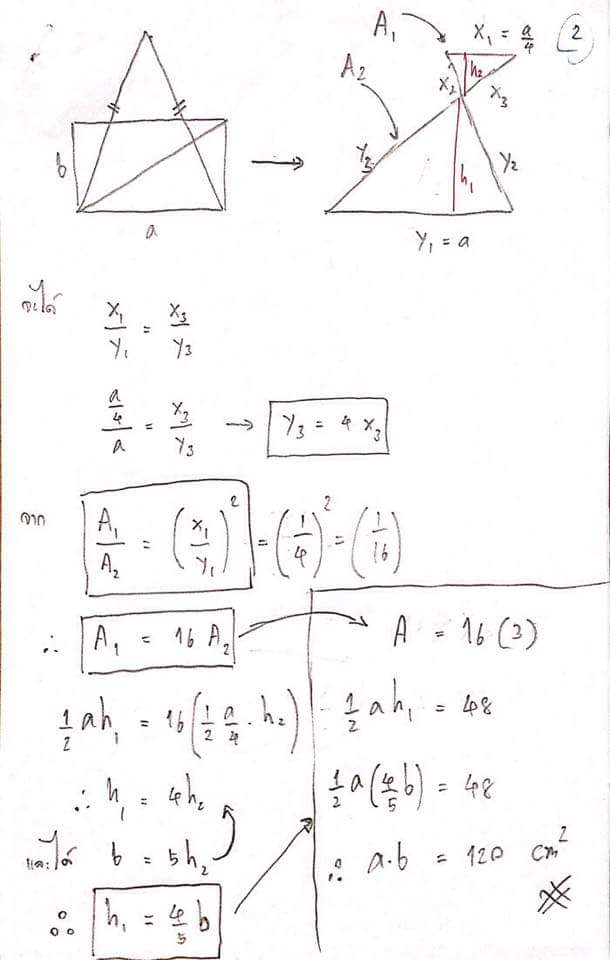 2
A₁
x₁ = a/4
A₂
h₂
x₂
x₃
b
y₃
h₁
y₂
a
y₁ = a
จะได้
x₁/y₁ = x₃/y₃
(a/4)/a = x₃/y₃ → y₃ = 4 x₃
จาก
A₁/A₂ = (x₁/y₁)² = (1/4)² = (1/16)
∴ A₁ = 16 A₂
1/2 ah₁ = 16(1/2 a/4 · h₂)
∴ h₁ = 4h₂
และได้ b = 5h₂
∴ h₁ = 4/5 b
A = 16 (3)
1/2 a h₁ = 48
1/2 a(4/5 b) = 48
∴ a·b = 120 cm²